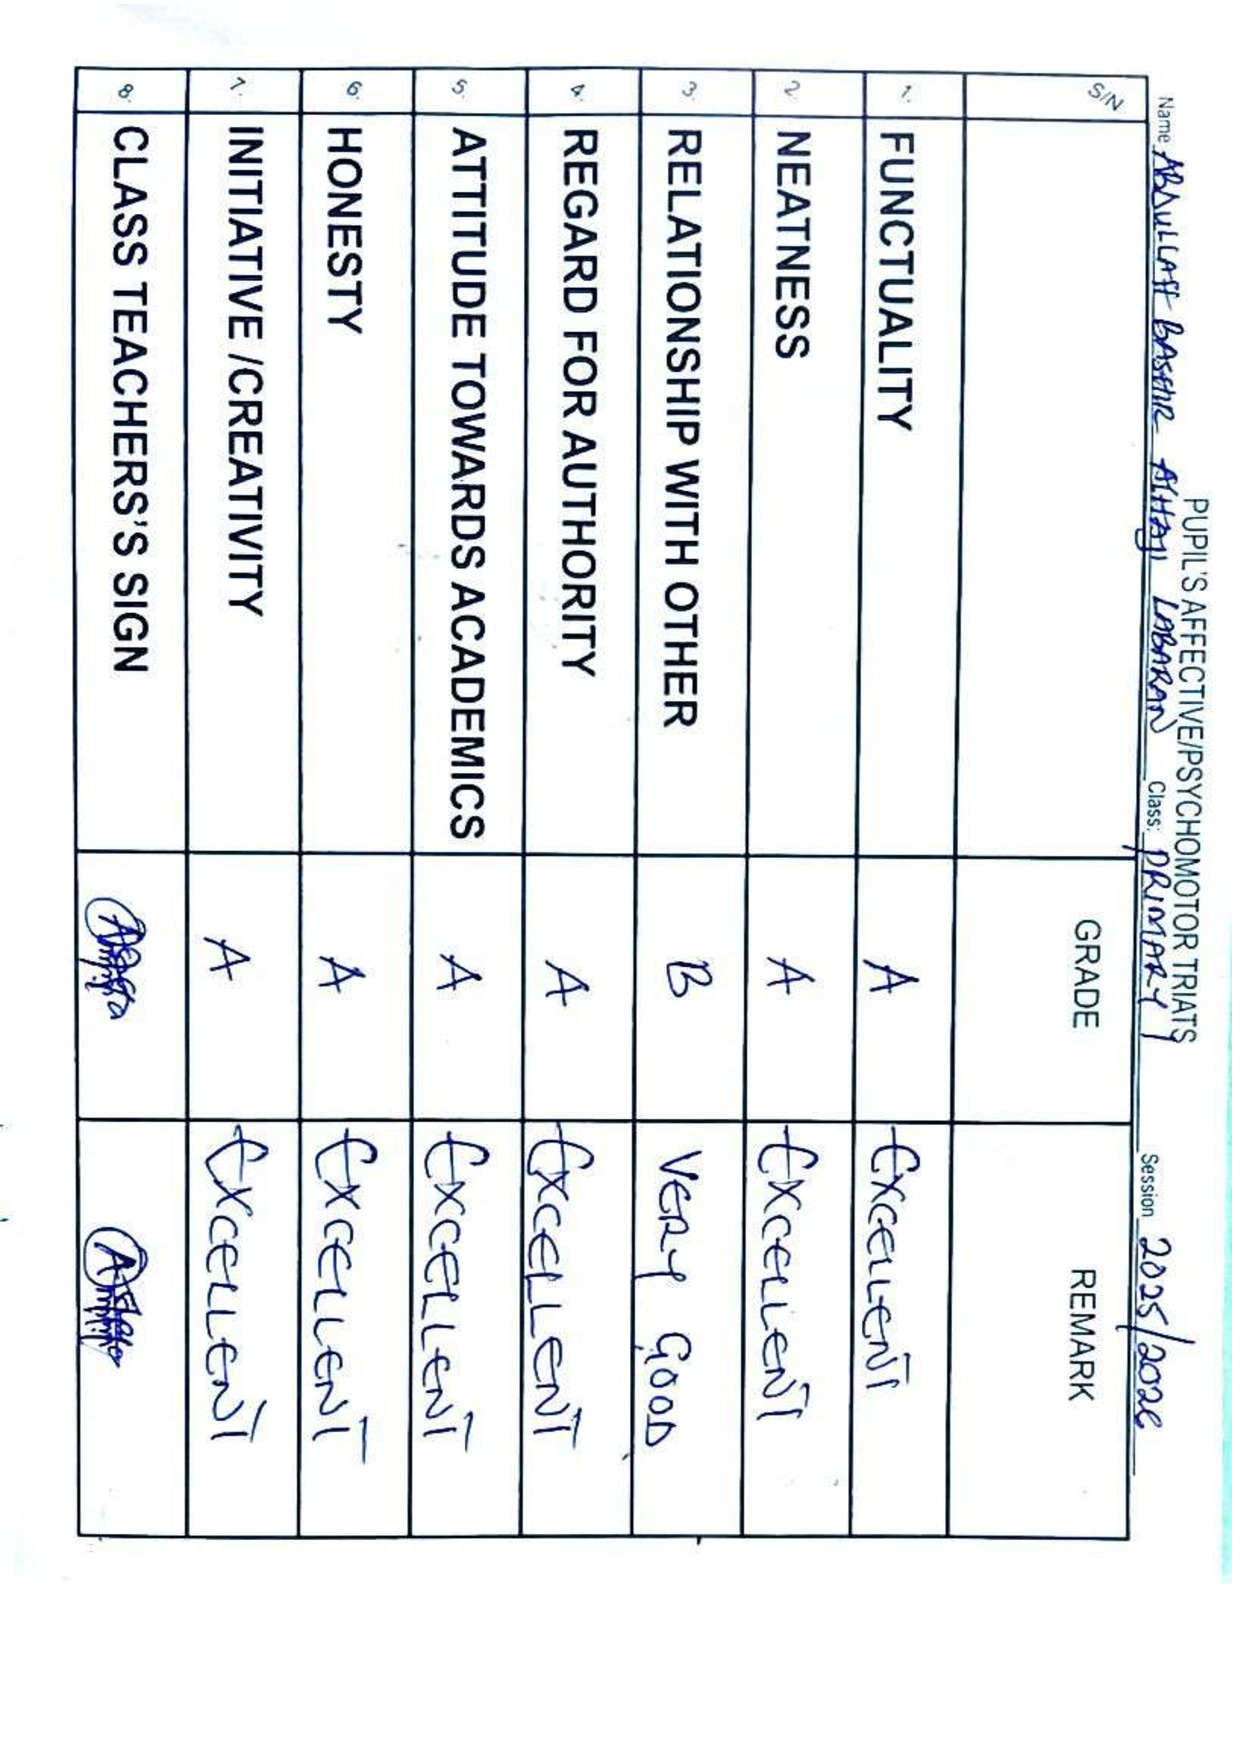 PUPIL'S AFFECTIVE/PSYCHOMOTOR TRIATS
Name ABDULLAH BASHIR ALHAJI LABARAN Class: PRIMARY 1 Session 2025/2026
S/N GRADE REMARK
1. FUNCTUALITY A EXCELLENT
2. NEATNESS A EXCELLENT
3. RELATIONSHIP WITH OTHER B VERY GOOD
4. REGARD FOR AUTHORITY A EXCELLENT
5. ATTITUDE TOWARDS ACADEMICS A EXCELLENT
6. HONESTY A EXCELLENT
7. INITIATIVE /CREATIVITY A EXCELLENT
8. CLASS TEACHERS'S SIGN